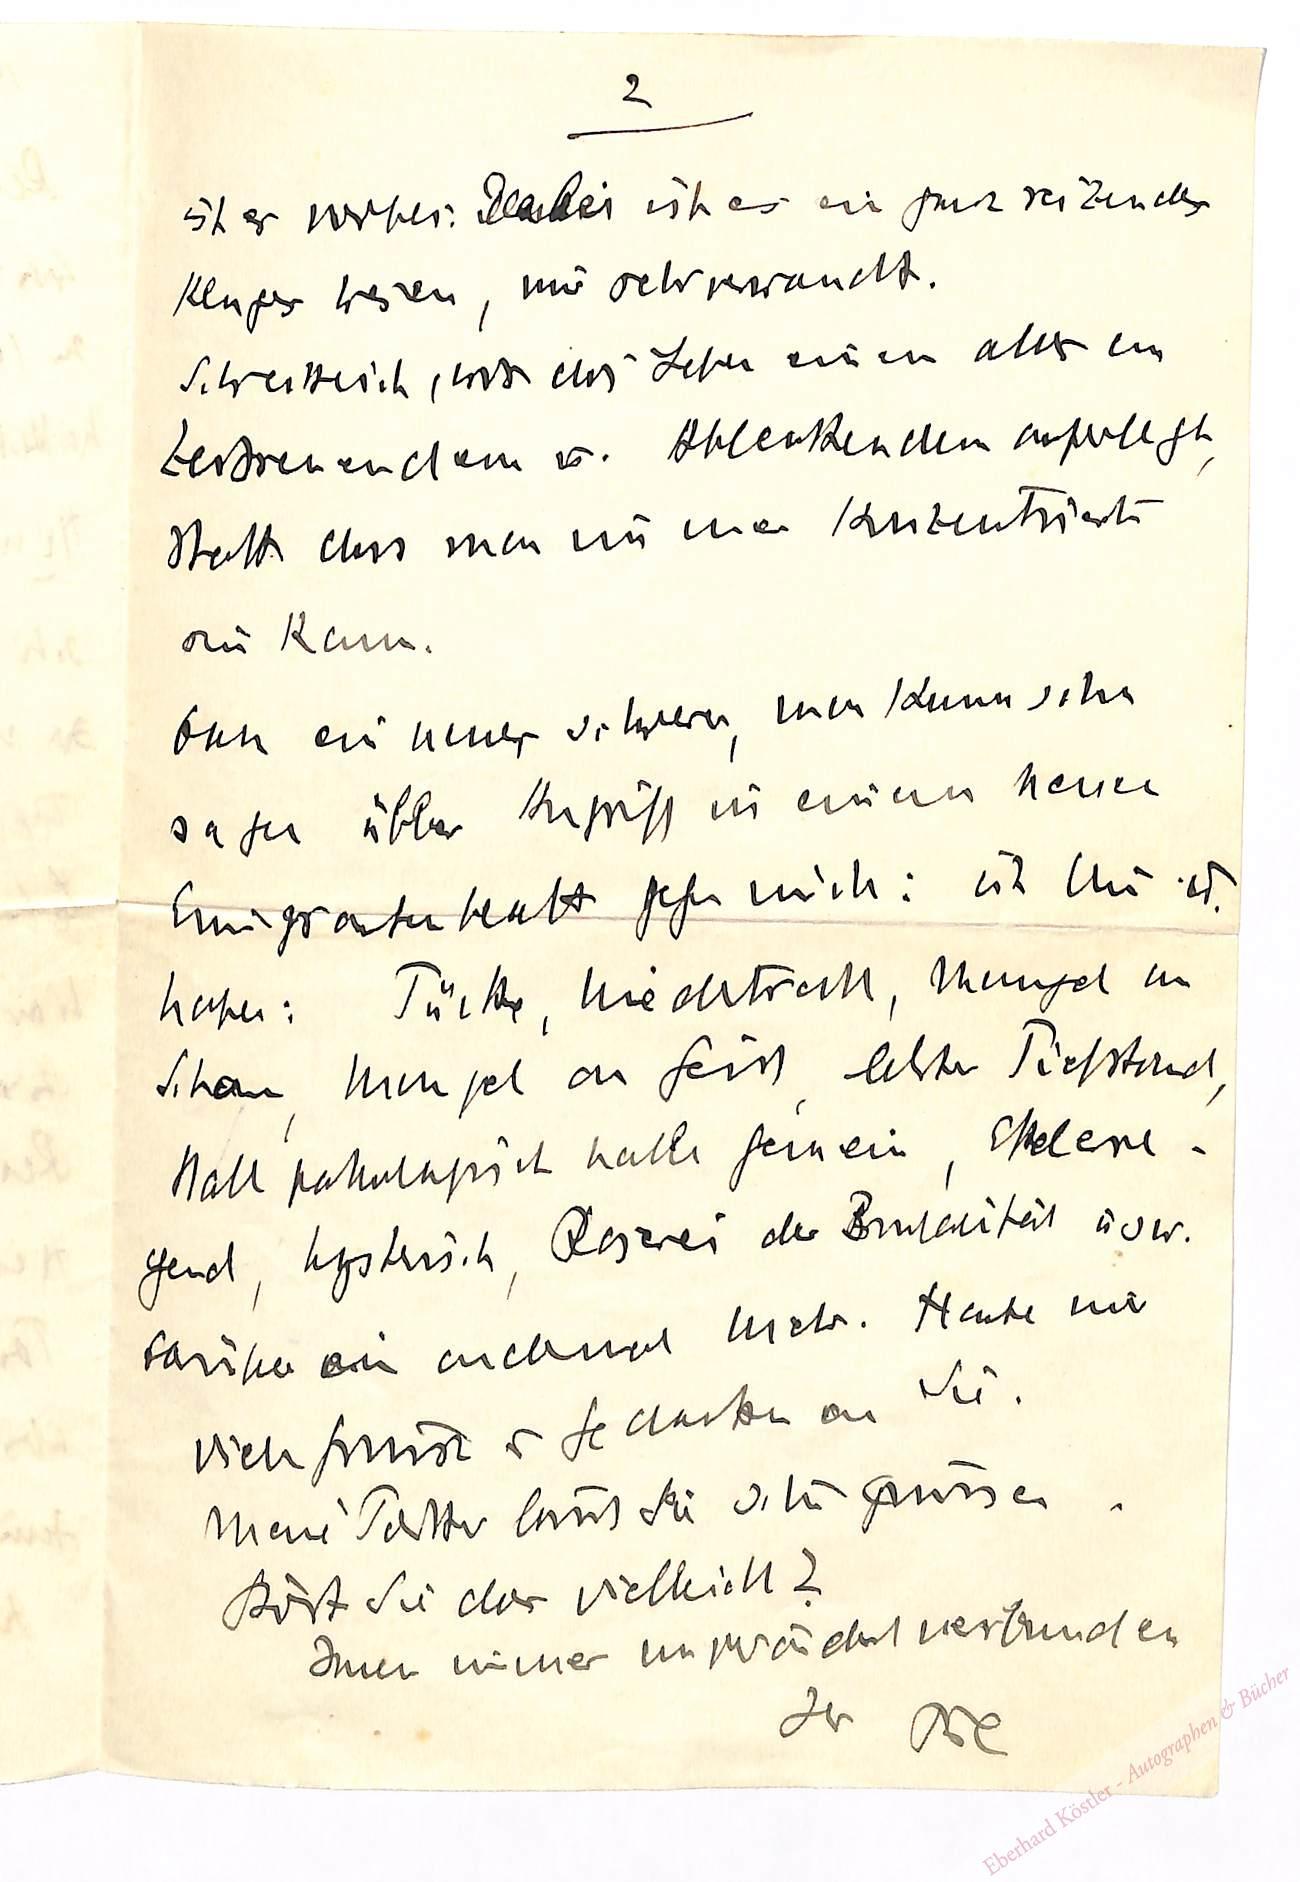 2
ist es vorbei. Dabei ist es ein ganz reizendes
kluges Wesen, mir sehr verwandt.
Schrecklich, was das Leben einem alles an
Zerstreuendem u. Ablenkendem auferlegt,
statt dass man nur immer konzentriert
sein kann.
Dann ein neuer schwerer, man kann schon
sagen übler Angriff in einem neuen
Emigrantenblatt gegen mich: ich
haben: Tücke, Niedertracht, Mangel an
Scham, Mangel an Geist, letzter Tiefstand,
statt pathologisch halb gemein, Ekelerre-
gend, hysterisch, Raserei der Brutalität usw.
Darüber ein andermal mehr. Heute nur
viele Grüsse u Gedanken an Sie.
Meine Tochter lässt Sie schön grüssen.
Stört Sie das vielleicht?
Ihnen immer unverändert verbunden
Ihr
Eberhard Köstler - Autographen & Bücher